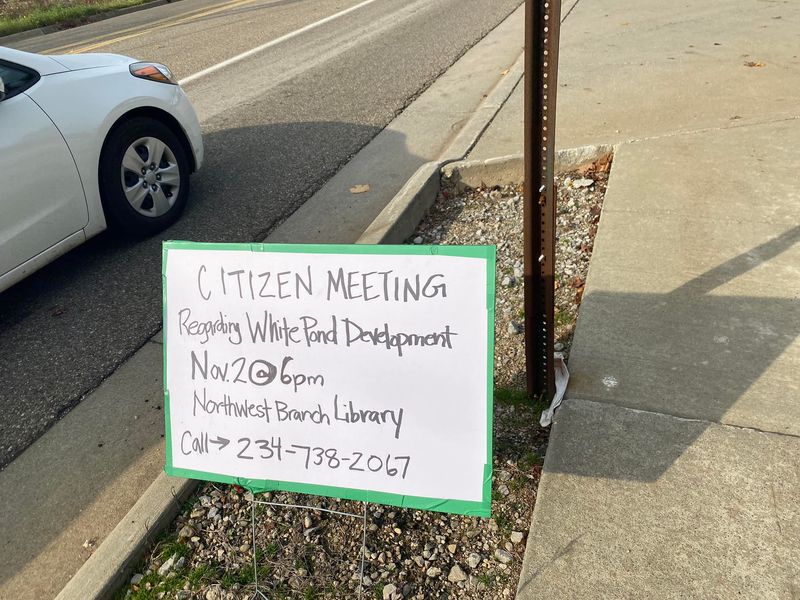 CITIZEN MEETING
Regarding White Pond Development
Nov. 2 @ 6pm
Northwest Branch Library
Call → 234-738-2067